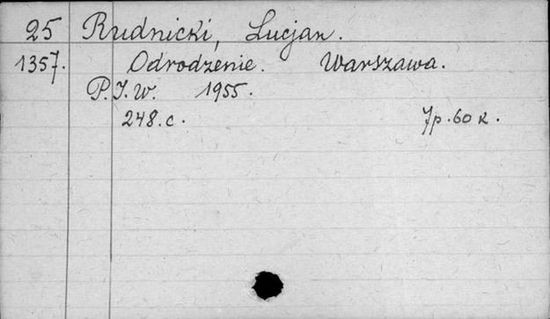 25 Rudnicki, Lucjan.
1357. Odrodzenie. Warszawa.
P.I.W. 1955.
248.c. 7р.60к.